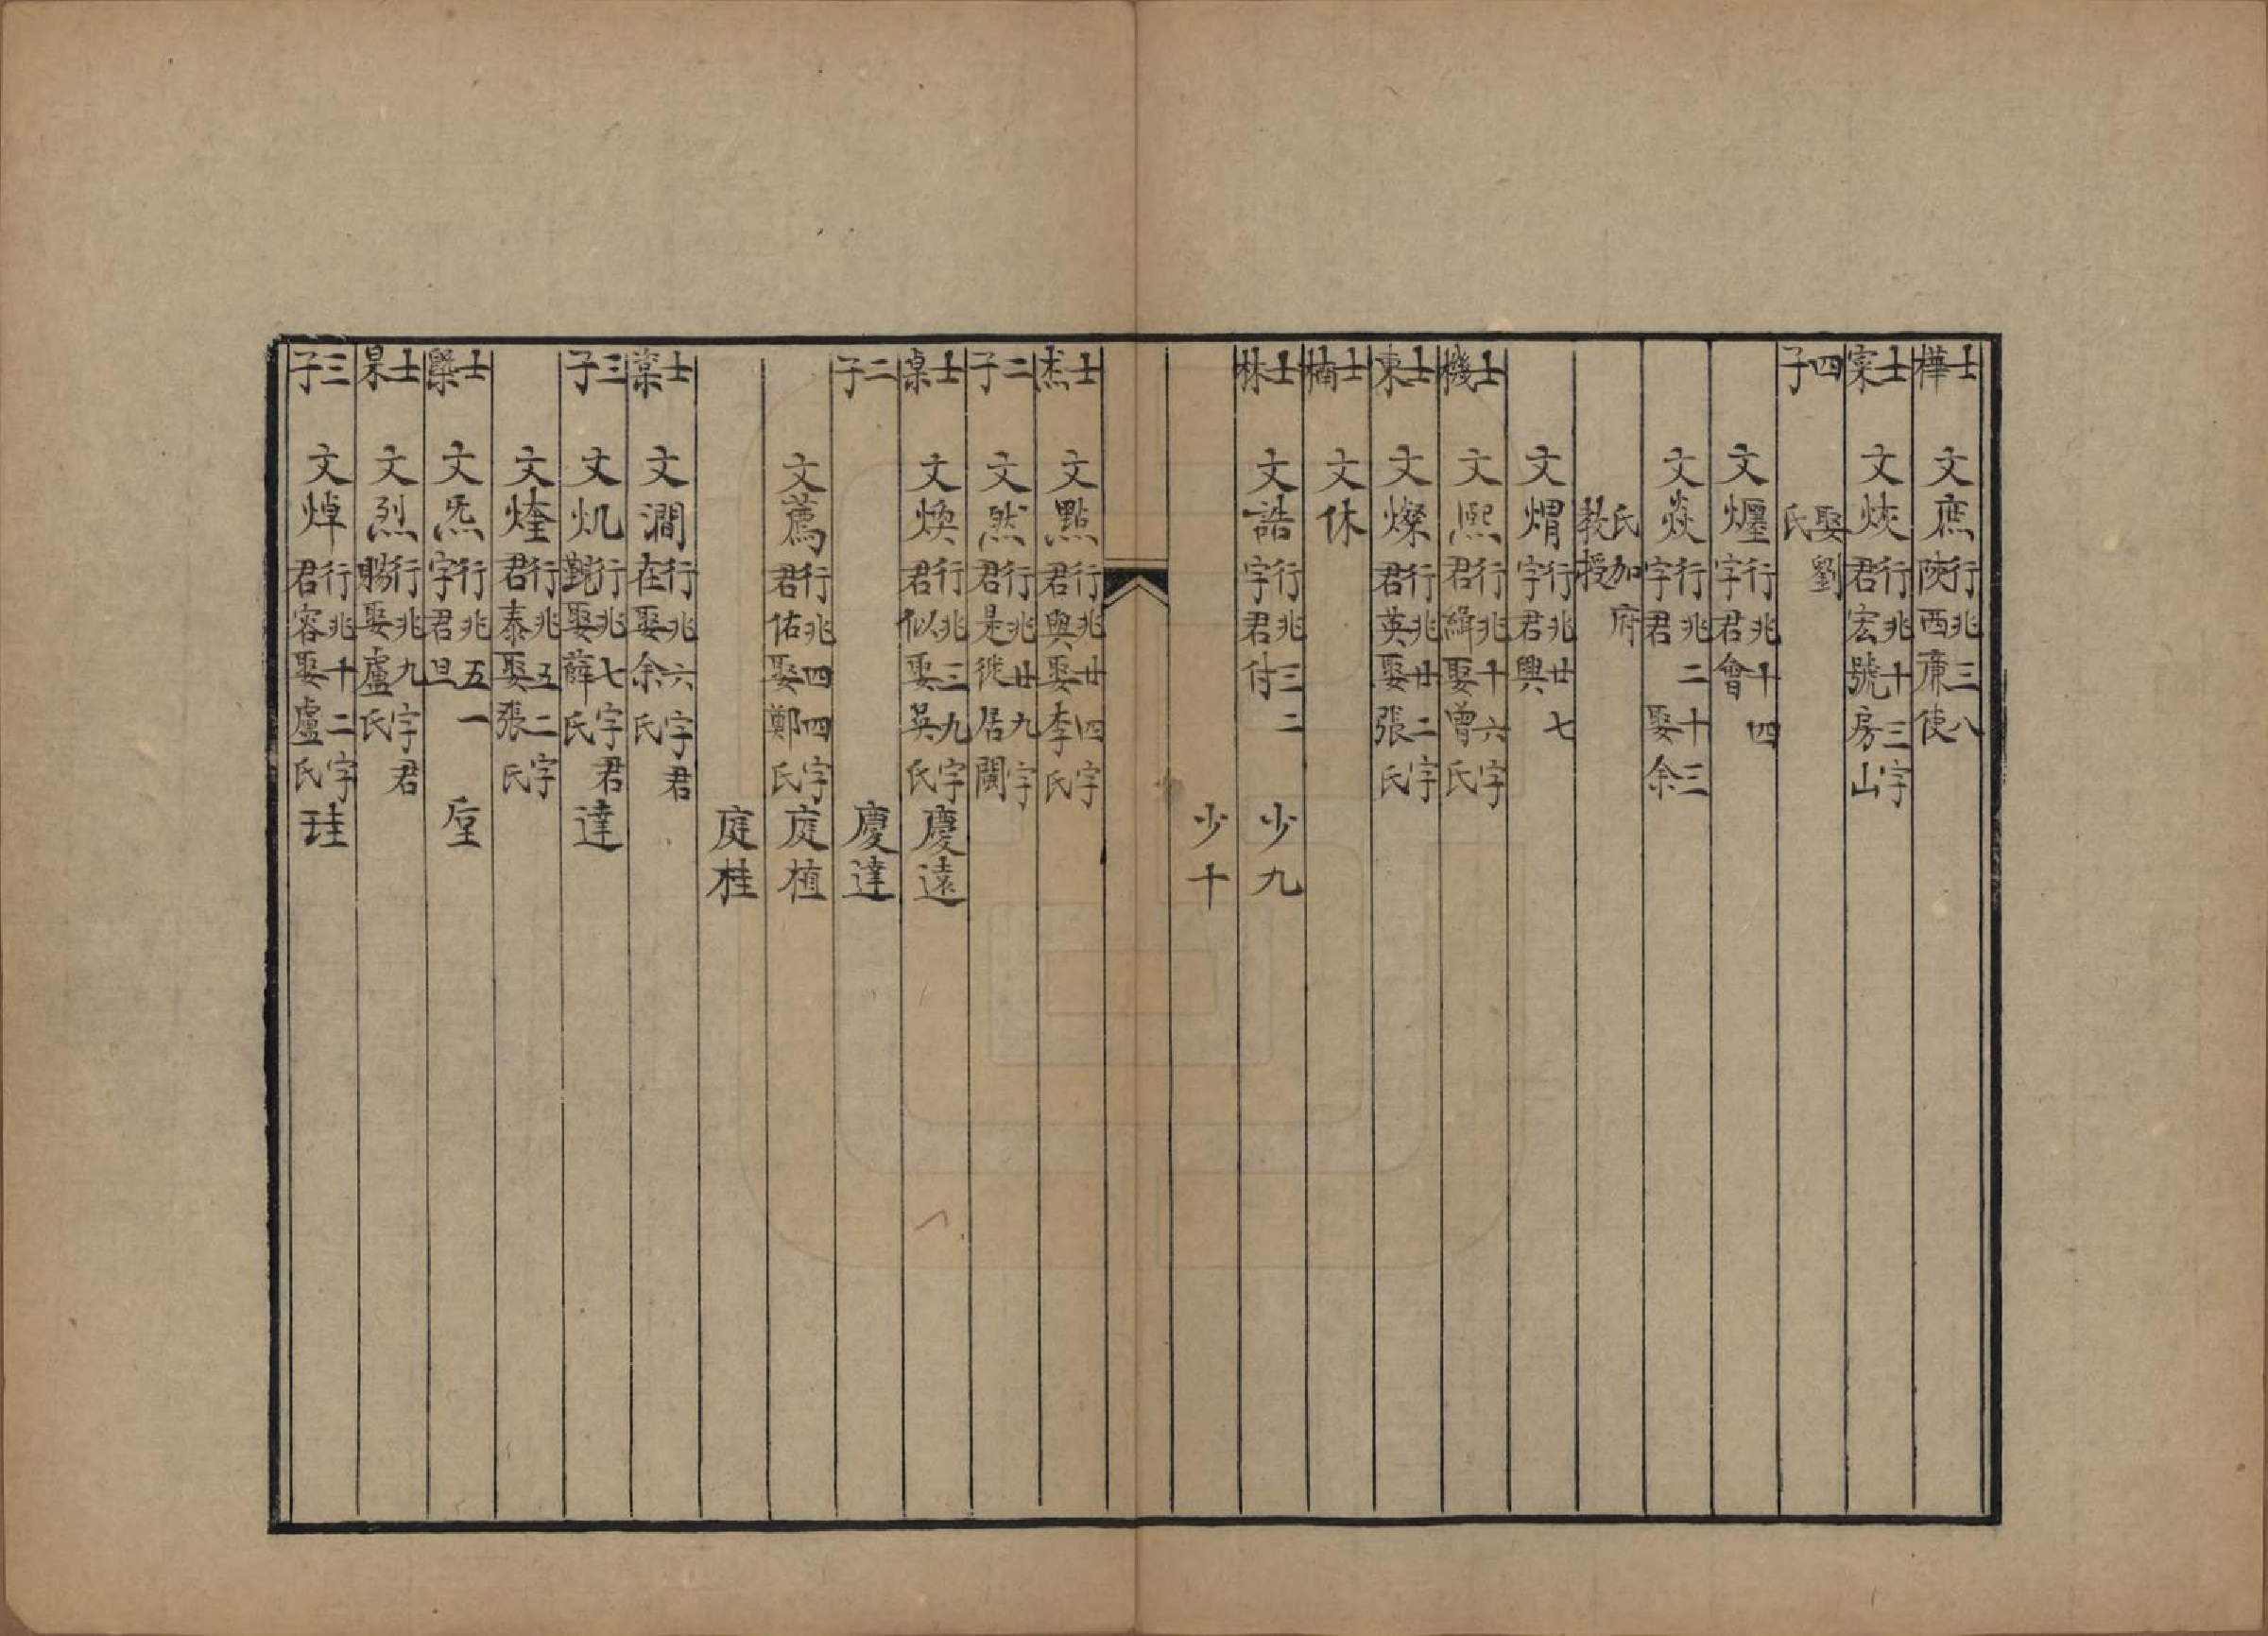 士樺 文庶行兆三八陝西廉使
士寀 文烗行兆十三字君宏號房山
四子 娶劉氏
文㷰行兆十四字君會
文焱行兆二十三字君 娶余
氏加府教授
文煟行兆廿七字君興
士機 文熙行兆十六字君緝娶曾氏
士東 文燦行兆廿二字君英娶張氏
士楠 文休
士林 文誥行兆三二字君付 少九
少十
士杰 文點行兆廿四字君與娶李氏
二子 文然行兆廿九字君是徙居閩
士桌 文煥行兆三九字君似娶吳氏 慶遠
二子 慶達
文薦行兆四四字君佑娶鄭氏 庭植
庭桂
士棠 文澗行兆六字君在娶余氏
三子 文炾行兆七字君覲娶薛氏 達
文煃行兆五二字君泰娶張氏
士槩 文炁行兆五一字君旦 垕
士杲 文烈行兆九字君賜娶盧氏
三子 文焯行兆十二字君容娶盧氏 珪